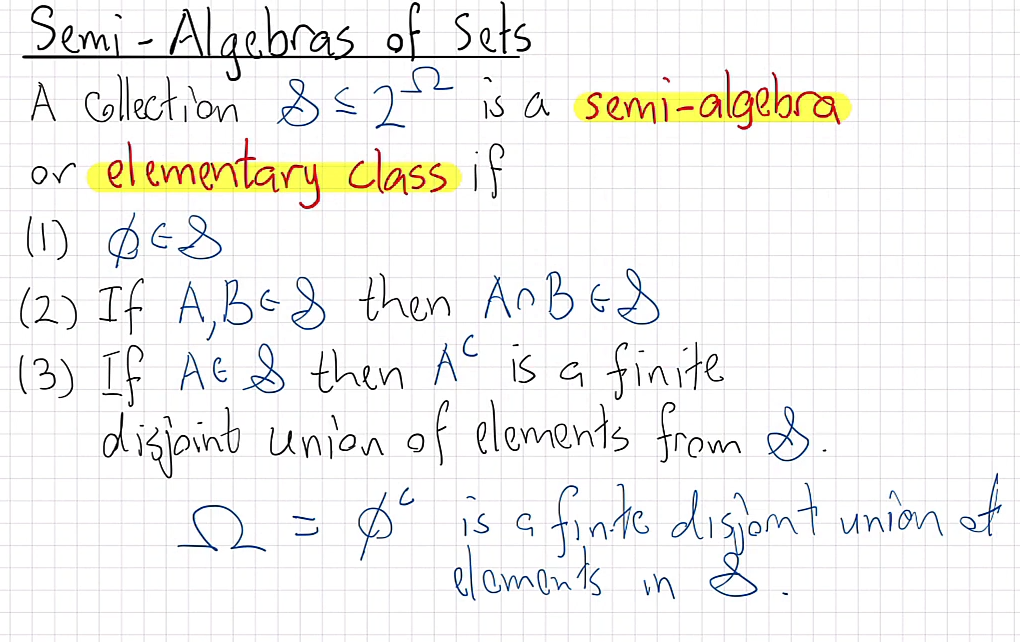 Semi-Algebras of Sets
A Collection 𝒮 ⊆ 2^Ω is a semi-algebra
or elementary class if
(1) ∅ ∈ 𝒮
(2) If A, B ∈ 𝒮 then A ∩ B ∈ 𝒮
(3) If A ∈ 𝒮 then A^c is a finite
disjoint union of elements from 𝒮.
Ω = ∅^c is a finite disjoint union of
elements in 𝒮.